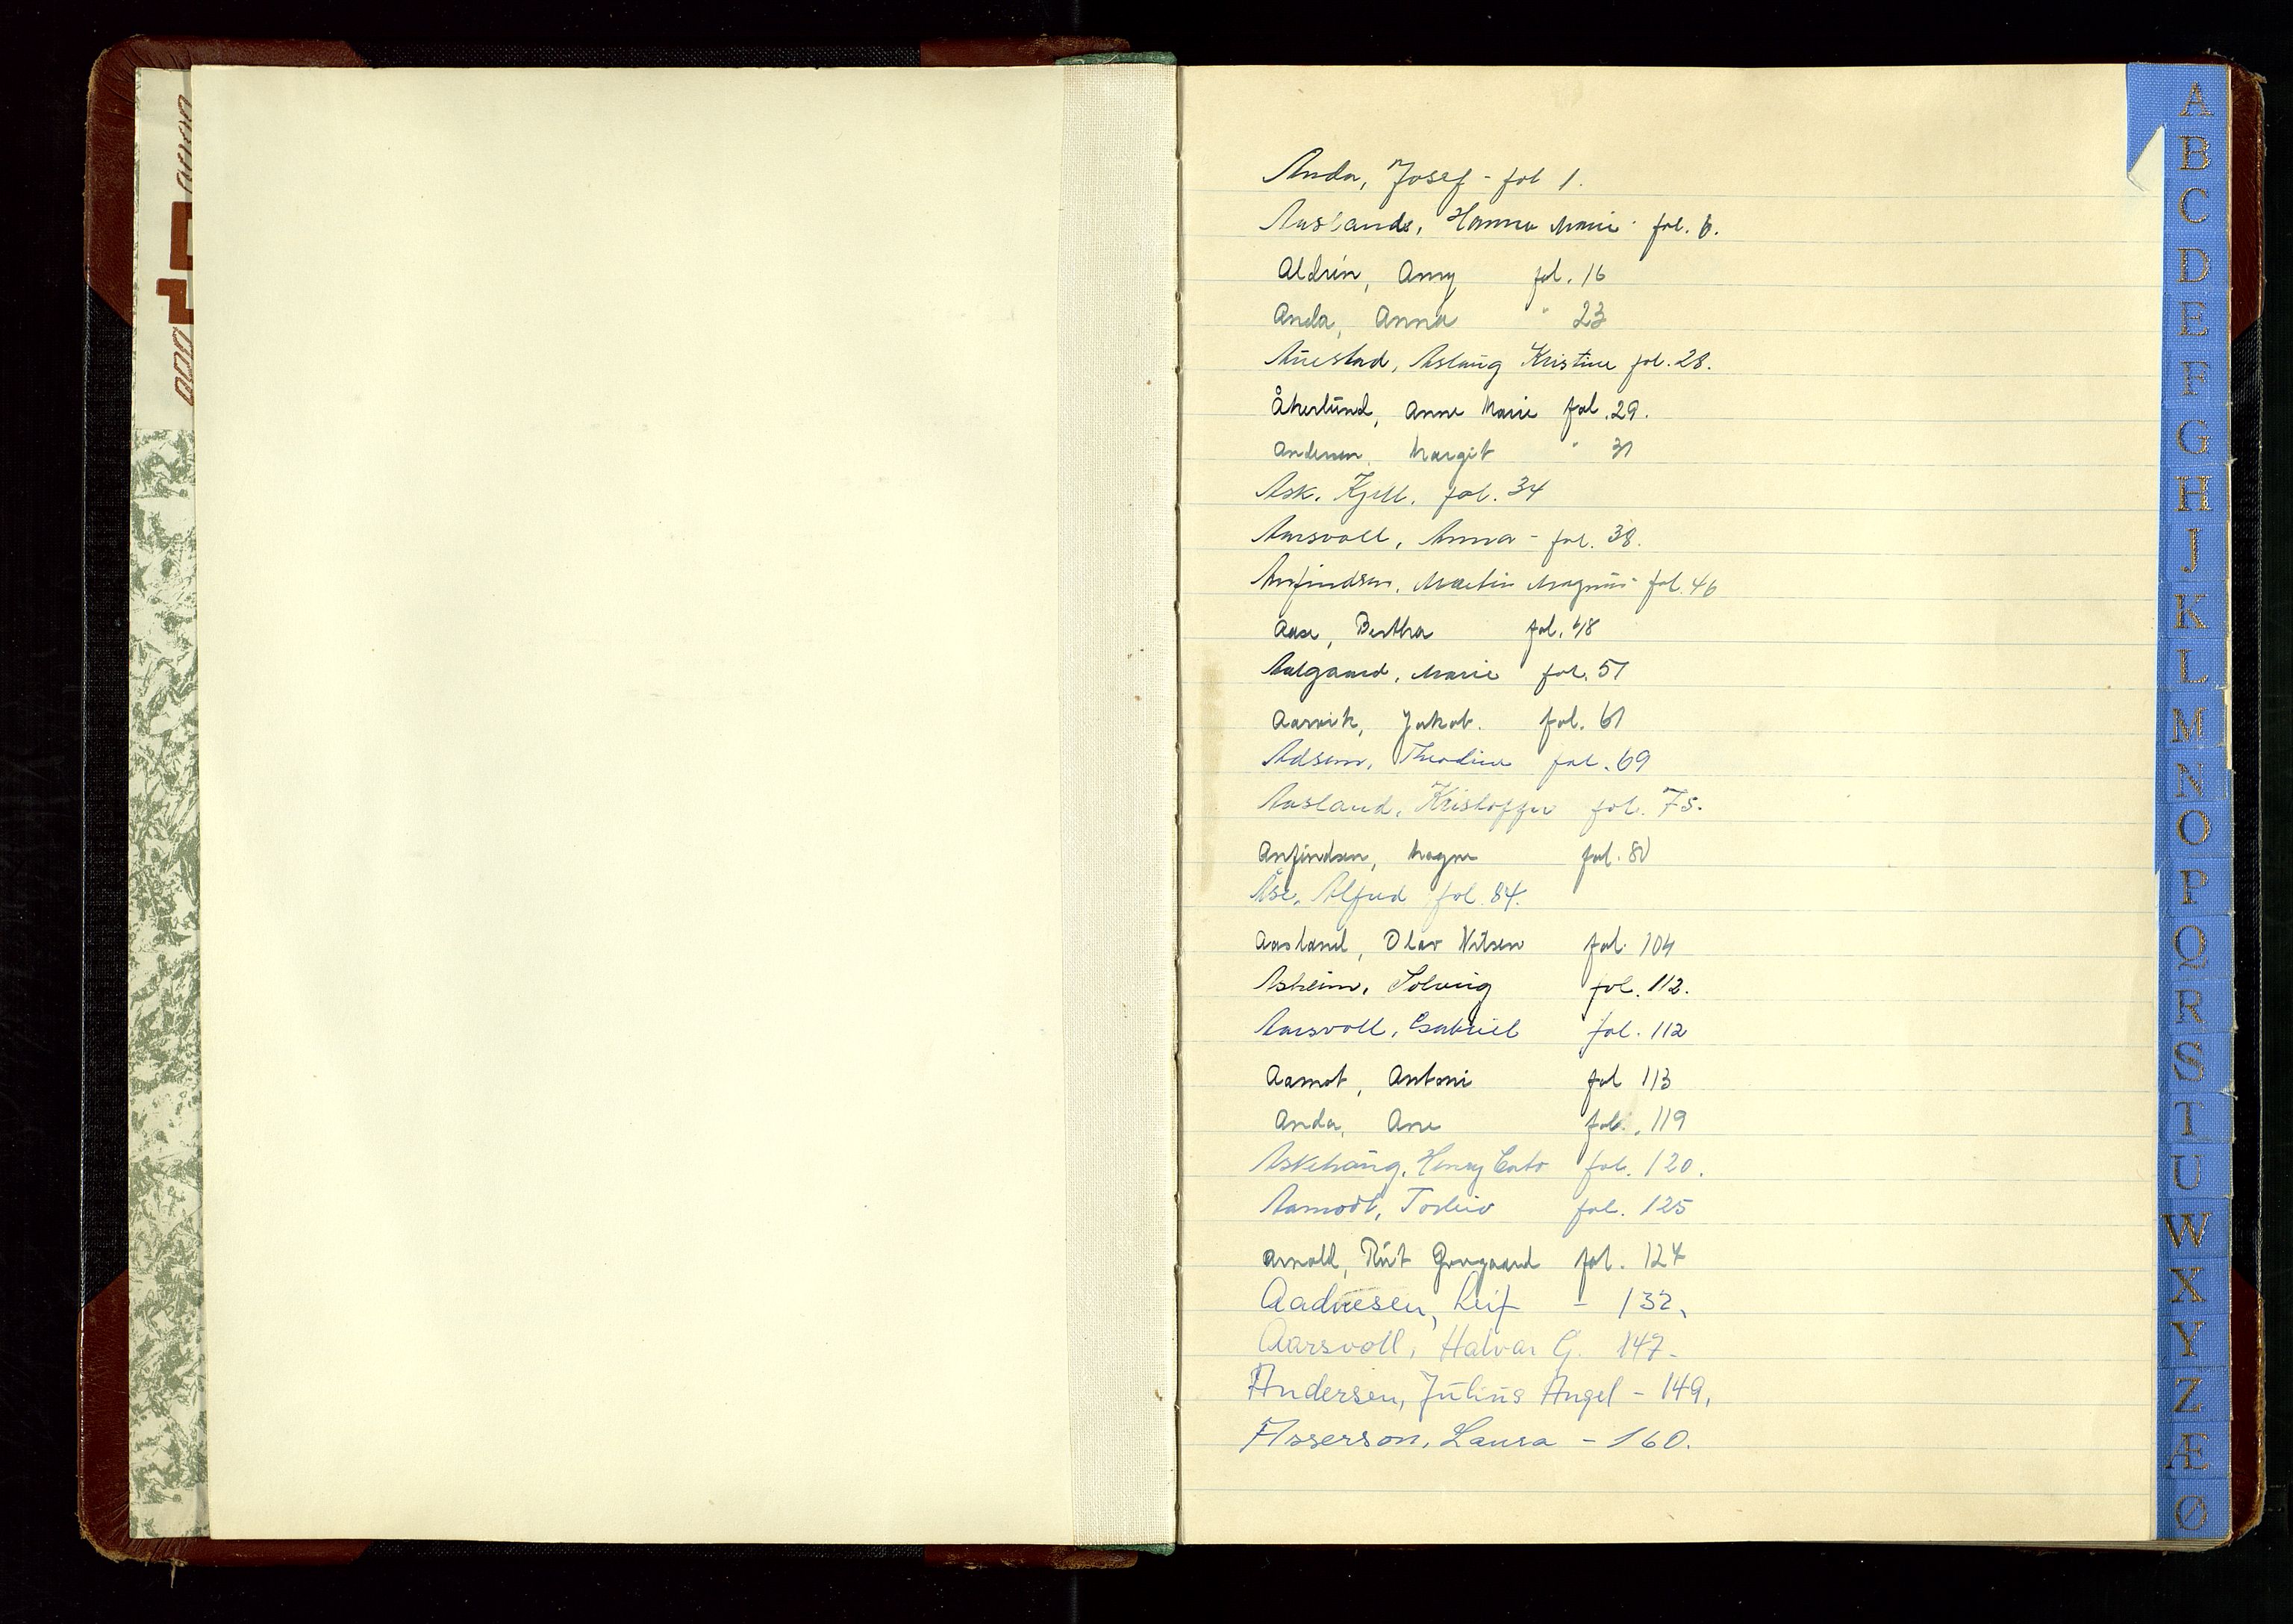 Anda, Josef - fol 1.
Aasland, Hanna Marie fol. 6.
Aldrin, Amy fol. 16
Anda, Anna " 23
Auestad, Aslaug Kristine fol. 28.
Åkerlund, Anne Marie fol. 29.
Andersen, Margit " 31
Ask, Kjell, fol. 34
Aarsvoll, Anna - fol. 38.
Anfindsen, Martin Magnus fol. 46
Aase, Bertha fol. 48
Aalgaard, Marie fol. 51
Aarvik, Jakob. fol. 61
Adsem, Theodine fol. 69
Aasland, Kristoffer fol. 75.
Anfindsen, Magne fol. 80
Åse, Alfred fol. 84.
Aasland, Olav Nilsen fol. 104
Asheim, Solveig fol. 112.
Aarsvoll, Gabriel fol. 112
Aamot, Antoni fol 113
Anda, Ane fol. 119
Askehaug, Henry Cato fol. 120.
Aamodt, Torleiv fol. 125
Arnold, Rut fol. 124
Aadnesen, Leif - 132.
Aarsvoll, Halvar G. 147-
Andersen, Julius Angel - 149.
Asserson, Laura - 160.
A
B
C
D
E
F
G
H
J
K
L
M
N
O
P
Q
R
S
T
U
W
X
Y
Z
Æ
Ø